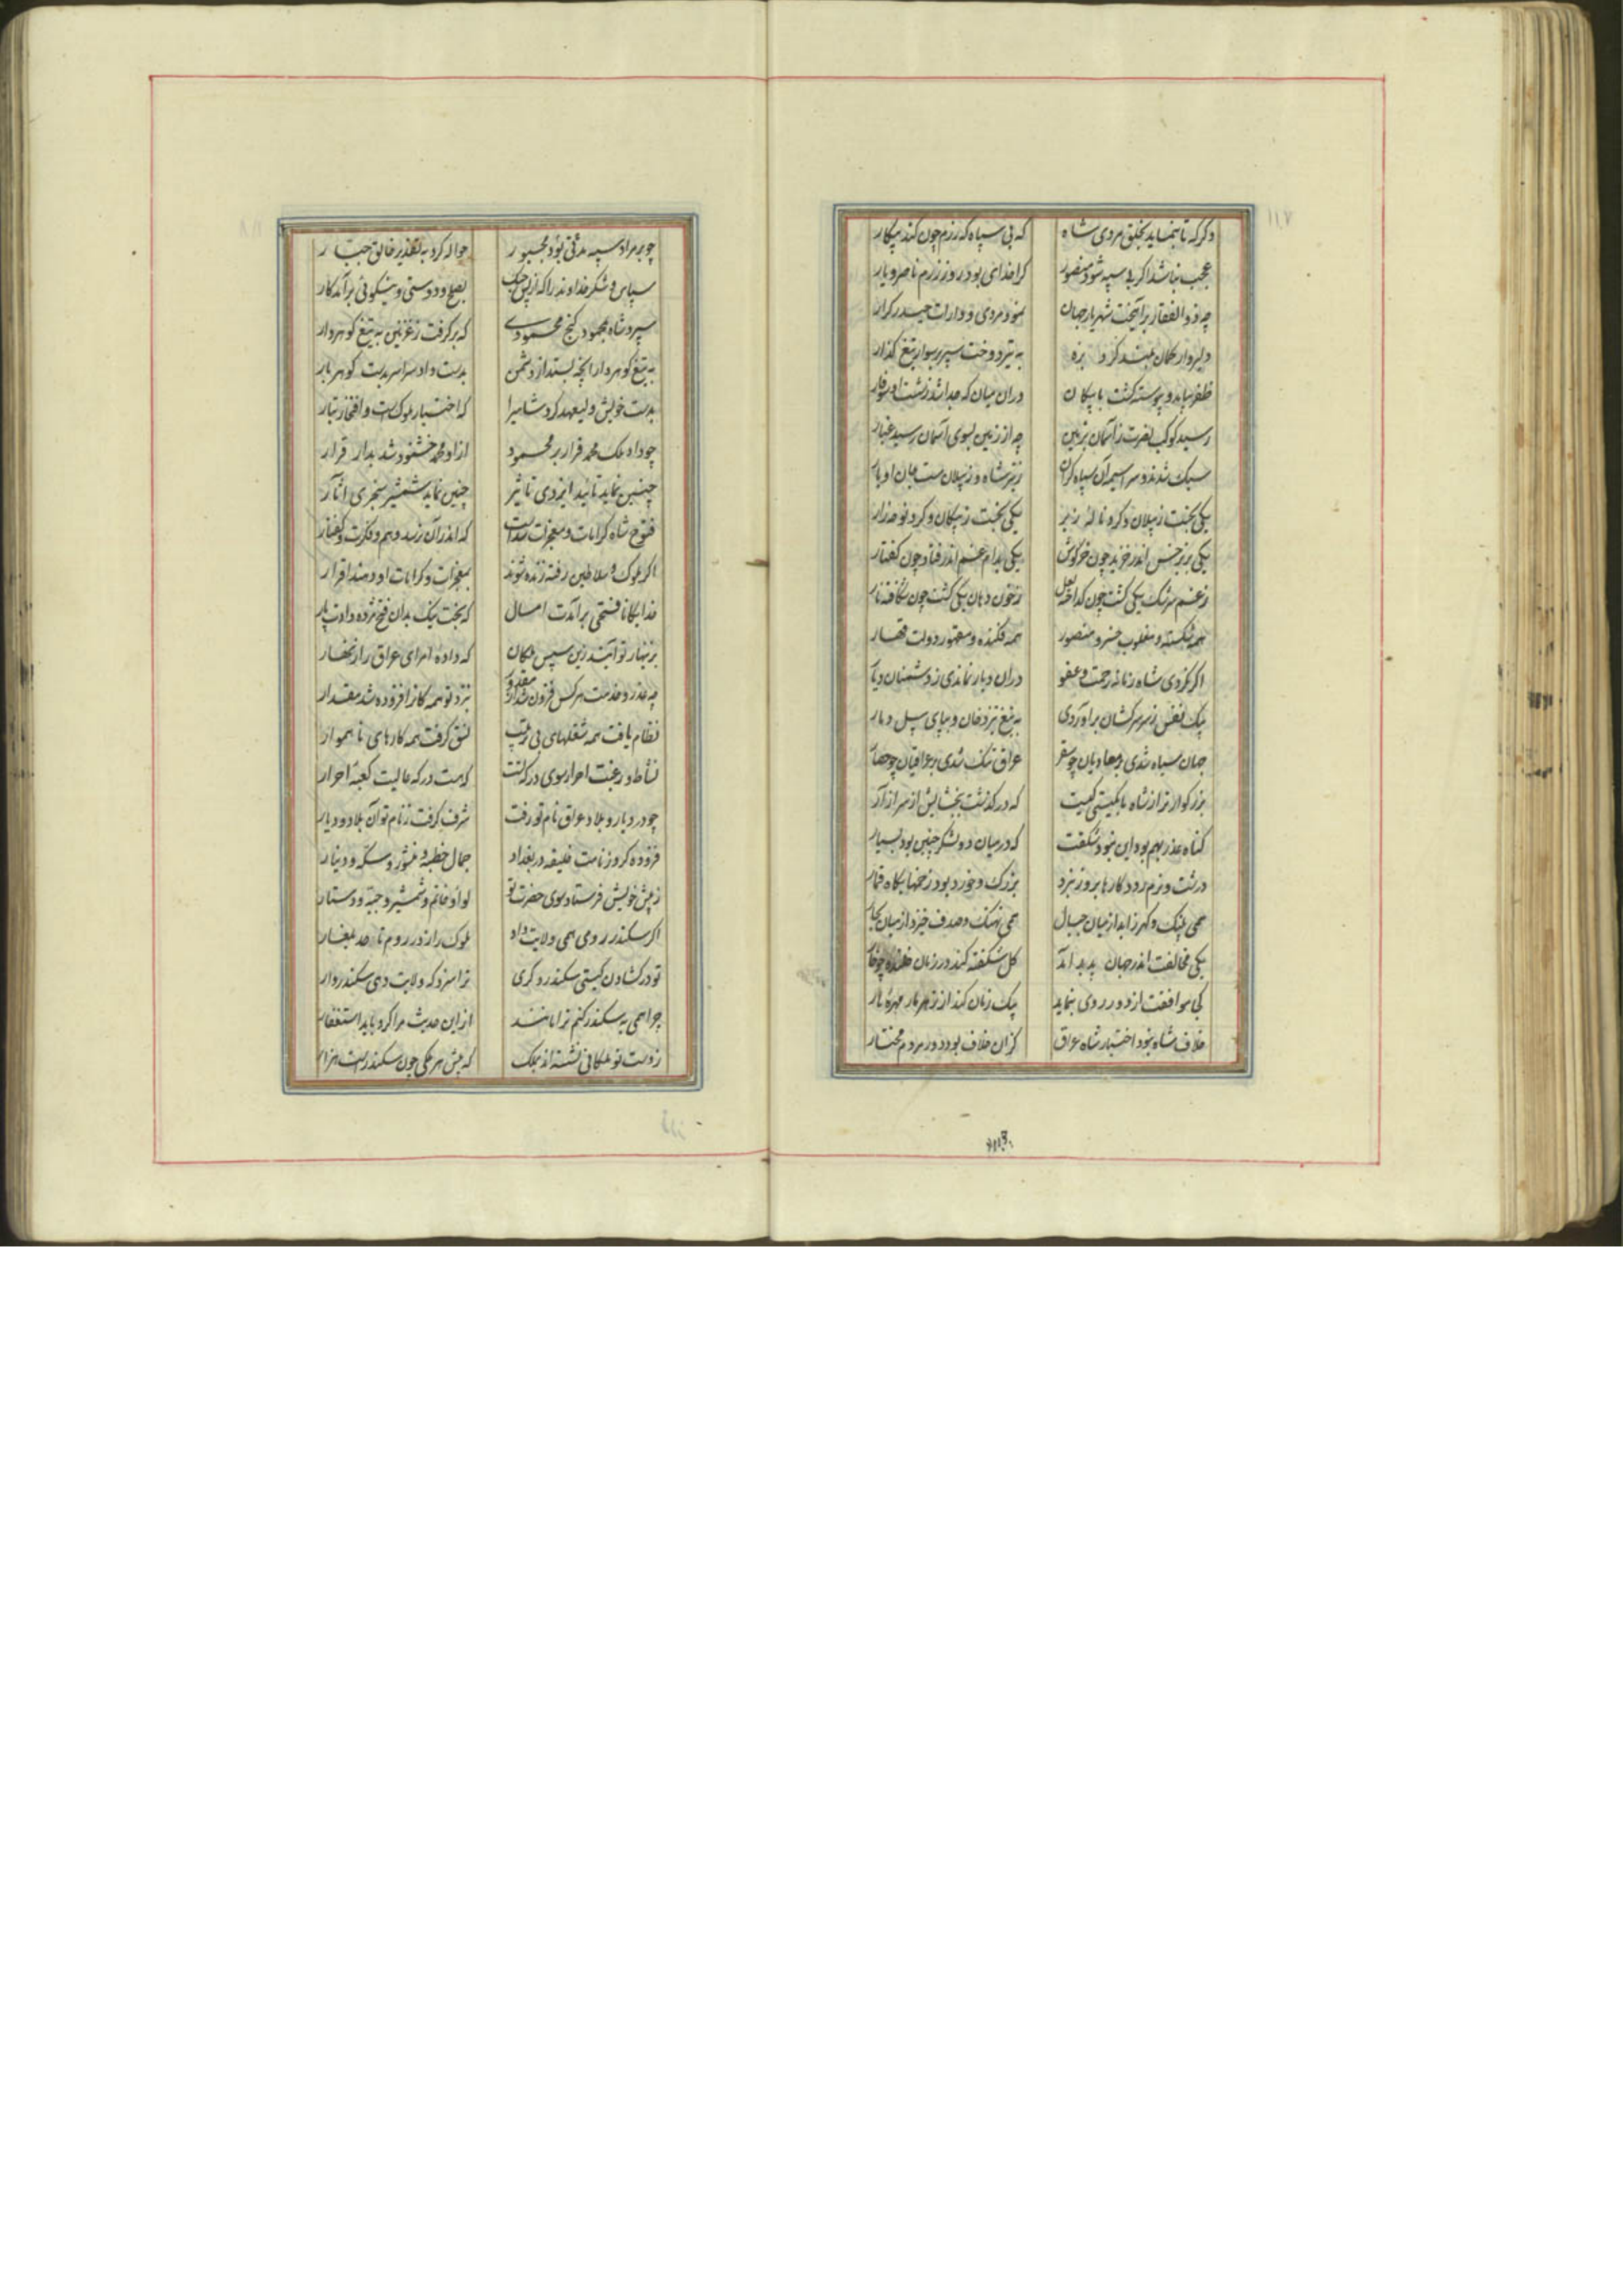 ۱۱۷
دکر که تا بنماید بخلق مردی شاه که بی سپاه که رزم چون کند پیکار
عجب نباشد اکر بی سپه شود منصور کرا خدای بود روز رزم ناصر و یار
چه ذو الفقار برآیخت شهریار جهان نمود مردی و دارات حیدر کرار
دلیروار کمان بلند کرد بزه به تیر دوخت سپر بر سوار تیغ کذار
ظفر بیامد و پیوسته کشت با پیکان دران میان که جدا شد ز شست او سوفار
رسید کوکب نصرت ز آسمان بزمین چه از زمین بسوی آسمان رسید غبار
سبک شدند و سراسیمه آن سپاه کران ز تیر شاه و ز پیلان مست جان اوبار
یکی بجست ز پیلان و کرد ناله زیر یکی بجست ز پیکان و کرد نوحه زار
یکی بزیر خس اندر خزید چون خرکوش یکی بدام غم اندر فتاد چون کفتار
ز غم سرشک یکی کشت چون کداخته لعل ز خون دهان یکی کشت چون شکافته نار
همه شکسته و مغلوب خسرو منصور همه فکنده و مقهور دولت قهار
اکر نکردی شاه زمانه رحمت و عفو دران دیار نماندی ز دشمنان دیار
بیک نفس ز سر سرکشان برآوردی به تیغ تیز دخان و بپای پیل دمار
جهان سیاه شدی بر معادیان چو سقر عراق تنک شدی بر عراقیان چو حصار
بزرکوارتر از شاه ما بکیتی کیست که درکذشت ببخشایش از سر آزار
کناه عذر بهم بود این نبود شکفت که در میان دو لشکر چنین بود بسیار
درشت و نرم رود کارها بروز نبرد بزرک و خورد بود زخمها بکاه قمار
همی پلنک و کهر زاید از میان جبال همی نهنک و صدف خیزد از میان بحار
یکی مخالفت اندر جهان پدید آمد کل شکفته کند در زمان خلنده چو خار
یکی موافقت از دور روی بنماید بیک زمان کند از زهر مار مهره مار
خلاف شاه نبود اختیار شاه عراق کزان خلاف بود دور مردم مختار
چو بر مراد سپه مدتی بود مجبور حواله کرد به تقدیر خالق جبار
سپاس و شکر خداوند را که از پس جنک بصلح و دوستی و نیکوئی برآمد کار
سپرد شاه بمحمود کنج محمودی که برکرفت ز غزنین به تیغ کوهردار
به تیغ کوهردار آنچه بستد از دشمن بدست داد سراسر بدست کوهر بار
بدست خویش ولیعهد کرد شاهی را که اختیار ملوک است و افتخار تبار
چو داد ملک محمد قرار بر محمود ازو محمد خشنود شد بدار قرار
چنین نماید تایید ایزدی تاثیر چنین نماید شمشیر سنجری آثار
فتوح شاه کرامات و معجزات شداست که اندر آن نرسد وهم و فکرت و کفتار
اکر ملوک و سلاطین رفته زنده شوند بمعجزات و کرامات او دهند اقرار
خدایکانا فتحی برآمدت امسال که بخت نیک بدان فتح مژده دادت پار
بزینهار تو آیند زین سپس ملکان که داده امرای عراق را زنهار
چه عذر و خدمت هر کس فزون شد از مقدور بنزد تو همه کانرا فزوده شد مقدار
نظام یافت همه شغلهای بی ترتیب نسق کرفت همه کارهای ناهموار
نشاط و رغبت احرار سوی درکه تست که هست درکه عالیت کعبه احرار
چو در دیار و بلاد عراق نام تو رفت شرف کرفت ز نام تو آن بلاد و دیار
فزوده کرد ز نامت خلیفه در بغداد جمال خطبه و منشور و سکه و دینار
ز پیش خویش فرستاد سوی حضرت تو لوا و خاتم و شمشیر و جبه و دستار
اکر سکندر رومی همی ولایت داد ملوک را ز در روم تا حد بلغار
تو در کشادن کیتی سکندر دکری ترا سزد که ولایت دهی سکندروار
چرا همی به سکندر کنم ترا مانند ازین حدیث مرا کرد باید استغفار
ز دست تو ملکانی نشسته اند بملک که پیش هر ملکی چون سکندرست هزار